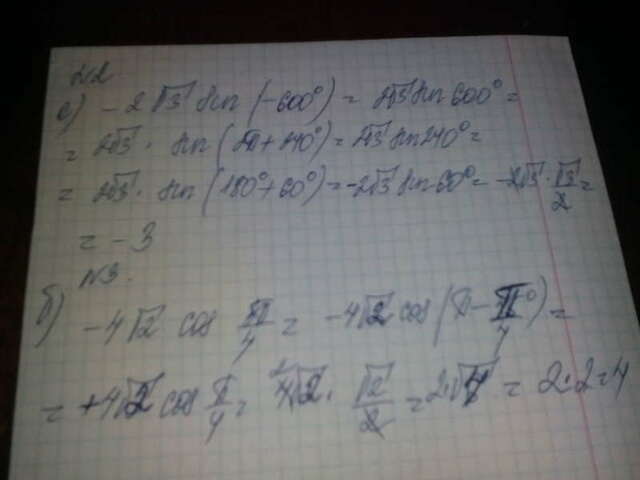 №2
а) -2√3 sin(-600°) = 2√3 sin 600° =
= 2√3 · sin(2π + 240°) = 2√3 sin 240° =
= 2√3 · sin(180° + 60°) = -2√3 sin 60° = -2√3 · √3/2 =
= -3
№3.
б) -4√2 cos 3π/4 = -4√2 cos(π - π°/4) =
= +4√2 cos π/4 = 4√2 · √2/2 = 2·√4 = 2·2=4